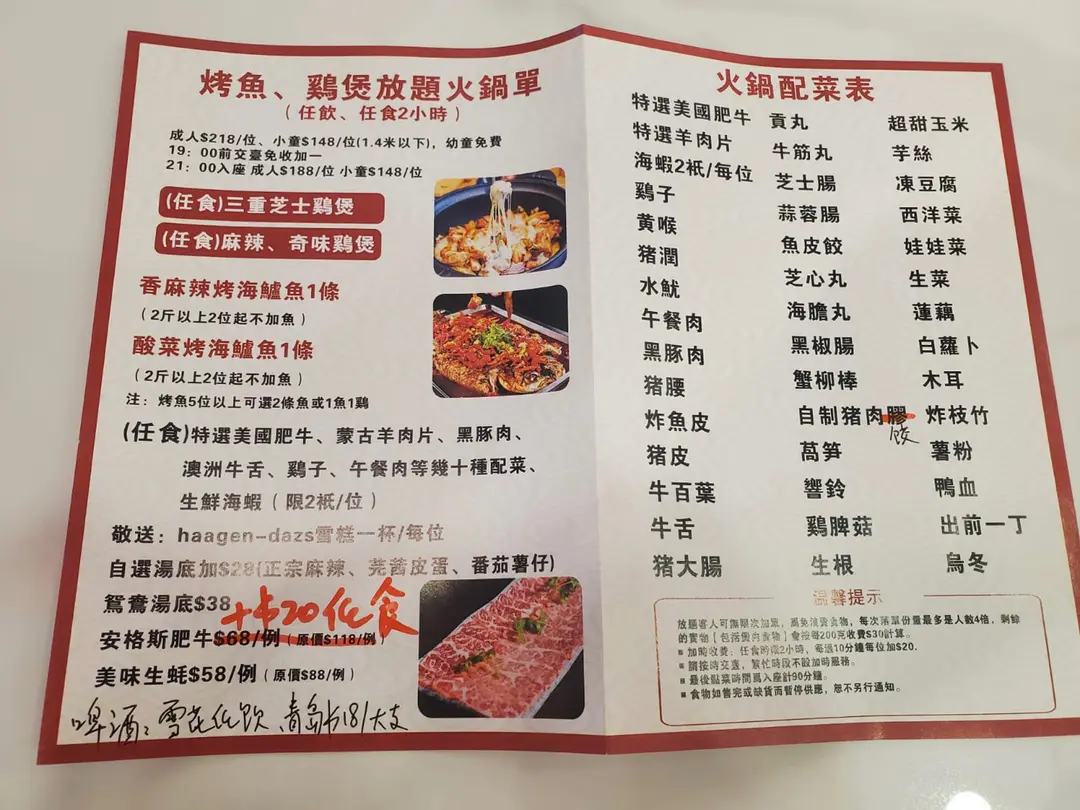 烤魚、鷄煲放題火鍋單
（任飲、任食2小時）
成人$218/位、小童$148/位(1.4米以下)，幼童免費
19：00前交臺免收加一
21：00入座 成人$188/位 小童$148/位
(任食)三重芝士鷄煲
(任食)麻辣、奇味鷄煲
香麻辣烤海鱸魚1條
（2斤以上2位起不加魚）
酸菜烤海鱸魚1條
（2斤以上2位起不加魚）
注：烤魚5位以上可選2條魚或1魚1鷄
(任食)特選美國肥牛、蒙古羊肉片、黑豚肉、
澳洲牛舌、鷄子、午餐肉等幾十種配菜、
生鮮海蝦（限2衹/位）
敬送：haagen-dazs雪糕一杯/每位
自選湯底加$28(正宗麻辣、芫茜皮蛋、番茄薯仔)
鴛鴦湯底$38
+$20任食
安格斯肥牛$68/例（原價$118/例）
美味生蚝$58/例（原價$88/例）
啤酒：雪花任飲 青島$18/大支
火鍋配菜表
特選美國肥牛 貢丸 超甜玉米
特選羊肉片 牛筋丸 芋絲
海蝦2衹/每位 芝士腸 凍豆腐
鷄子 蒜蓉腸 西洋菜
黄喉 魚皮餃 娃娃菜
猪潤 芝心丸 生菜
水魷 海膽丸 蓮藕
午餐肉 黑椒腸 白蘿卜
黑豚肉 蟹柳棒 木耳
猪腰 自制猪肉膠 炸枝竹
餃
炸魚皮 萵笋 薯粉
猪皮 響鈴 鴨血
牛百葉 鷄脾菇 出前一丁
牛舌 生根 烏冬
猪大腸
温馨提示
放題客人可無限次加單，爲免浪費食物，每次落單份量最多是人數4倍，剩餘
的食物【包括煲内食物】會按每200克收費$30計算。
■ 加時收費：任食時限2小時，每過10分鐘每位加$20.
■ 請按時交臺，繁忙時段不設加時服務。
■ 最後點菜時間爲入座計90分鐘。
■ 食物如售完或缺貨而暫停供應，恕不另行通知。